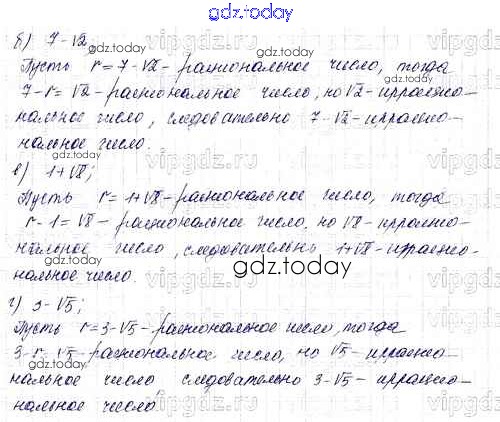 gdz.today
б) 7-√2;
Пусть r=7-√2-рациональное число, тогда
7-r=√2-рациональное число, но √2-иррацио-
нальное число, следовательно 7-√2-иррацио-
нальное число.
в) 1+√8;
Пусть r=1+√8-рациональное число, тогда
r-1=√8-рациональное число, но √8-иррацио-
нальное число, следовательно 1+√8-иррацио-
нальное число.
gdz.today
г) 3-√5;
Пусть r=3-√5-рациональное число, тогда
3-r=√5-рациональное число, но √5-иррацио-
нальное число следовательно 3-√5-иррацио-
нальное число.
gdz.today